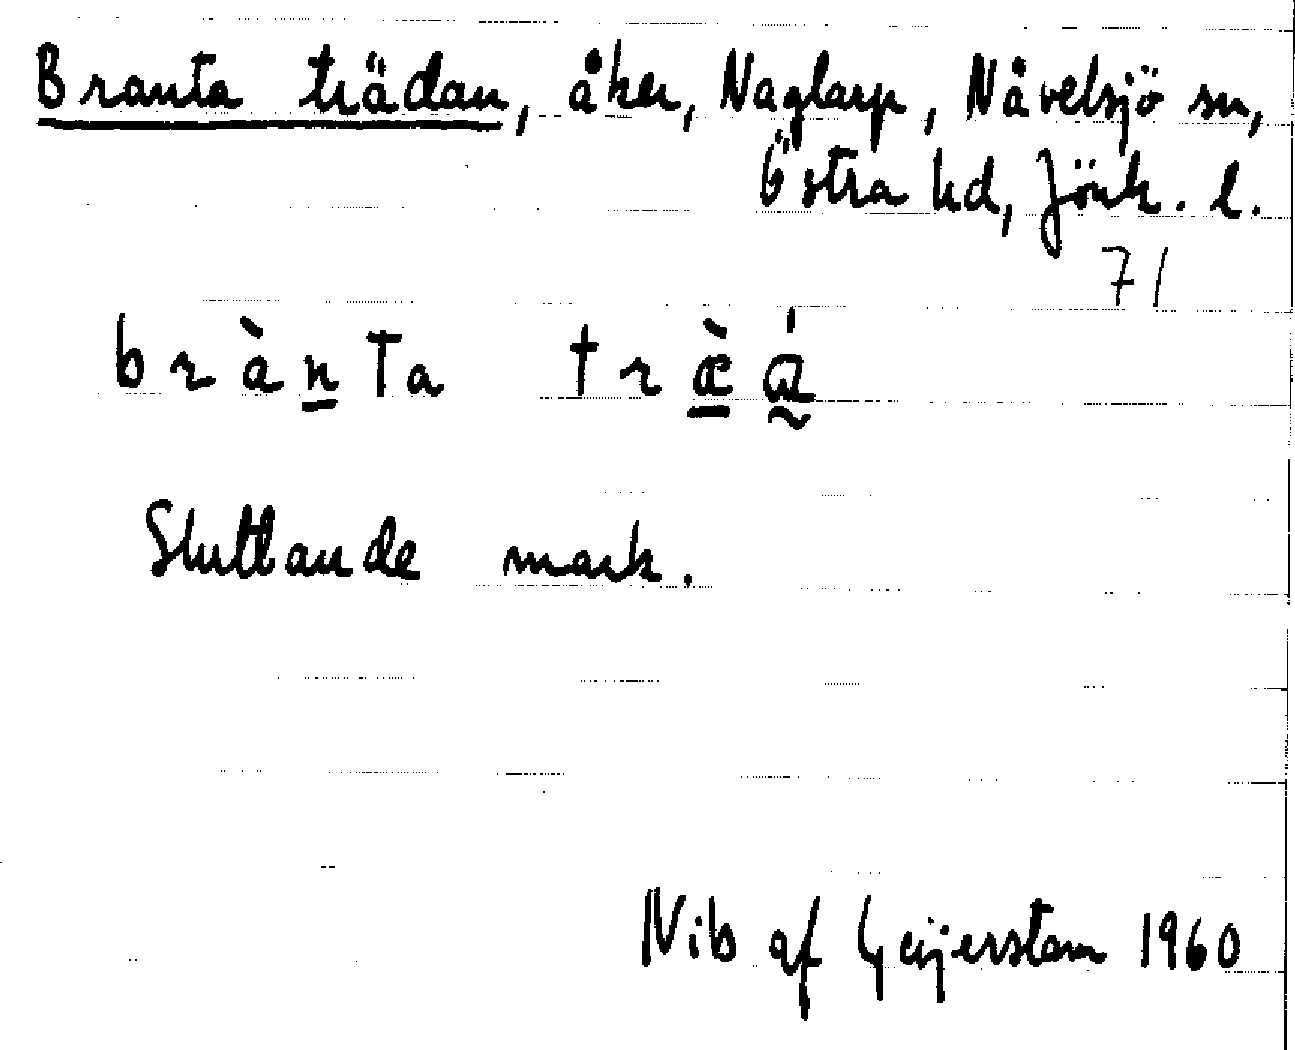 Branta trädan, åker, Naglarp, Nävelsjö sn,
Östra hd, Jönk. l.
71
brànta træ̀ɑ́
Sluttande mark.
Nib af Geijerstam 1960